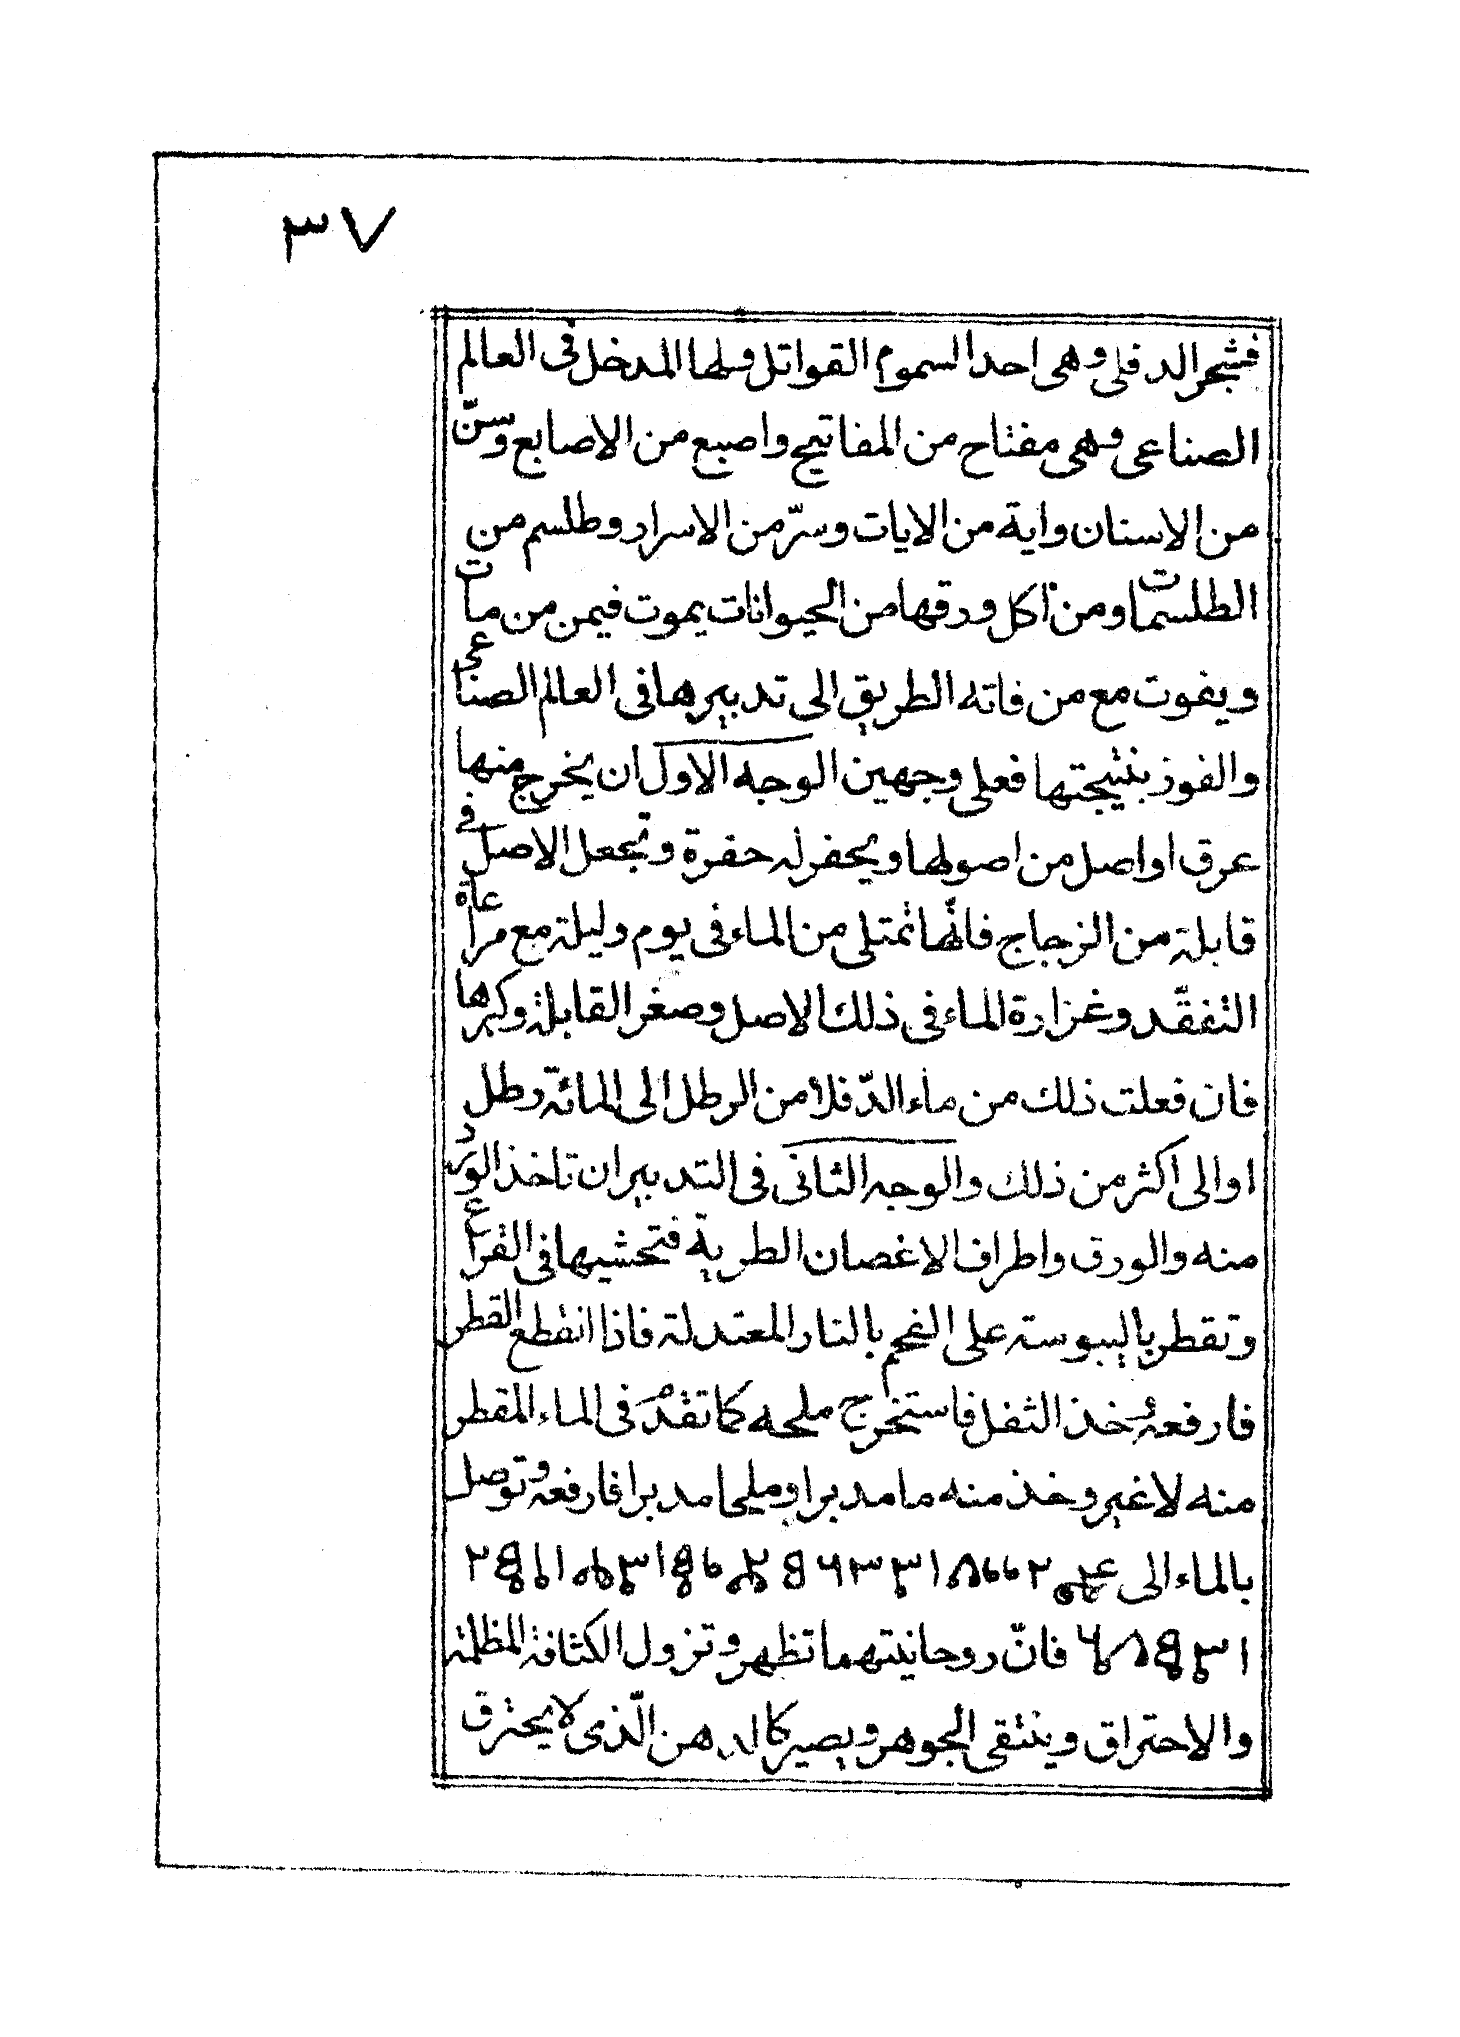 ٣٧
فشجر الدفلى وهى احد السموم القواتل ولها المدخل فى العالم
الصناعى وهى مفتاح من المفاتيح واصبع من الاصابع وسنّ
من الاسنان واية من الايات وسرّ من الاسرار وطلسم من
الطلسمات ومن اكل ورقها من الحيوانات يموت فيمن من مات
ويفوت مع من فاته الطريق الى تدبيرها فى العالم الصناعى
والفوز بنتيجتها فعلى وجهين الوجه الاول ان يخرج منها
عرق او اصل من اصولها ويحفر له حفرة وتجعل الاصل فى
قابلة من الزجاج فانّها تمتلى من الماء فى يوم وليلة مع مراعاة
التفقّد وغزارة الماء فى ذلك الاصل وصغر القابلة وكبرها
فان فعلت ذلك من ماء الدّفلا من الرطل الى المائة رطل
او الى اكثر من ذلك والوجه الثانى فى التدبير ان تاخذ الورد
منه والورق واطراف الاغصان الطرية فتحشيها فى القرع
وتقطر باليبوسة على الفحم بالنار المعتدلة فاذا انقطع القطر
فارفعه وخذ الثفل فاستخرج ملحه كما تقدّم فى الماء المقطر
منه لا غير وخذ منه ما مدبرا وملحا مدبرا فارفعه وتوصل
بالماء الى
فانّ روحانيتهما تظهر وتزول الكثافة المظلمة
والاحتراق وينتقى الجوهر ويصير كالدهن الّذى لا يحترق